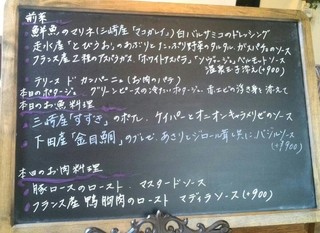 前菜
・鮮魚のマリネ(三崎産「マコガレイ」)白バルサミコのドレッシング
・走水産「とびうお」のあぶりとたっぷり野菜のタルタル ガスパチョのソース
・フランス産2種のアスパラガス「ホワイトアスパラ」「ソヴァージュ」ベルモートソース
温泉玉子添え(+900)
・テリーヌ ド カンパーニュ(お肉のパテ)
本日のポタージュ。グリーンピースの冷たいポタージュ。 添えて
本日のお魚料理
・三崎産「すずき」のポワレ ケイパーとオニオンキャラメリゼのソース
・下田産「金目鯛」のブレゼ、あさりとジロール茸と共に バジルソース
(+900)
本日のお肉料理
・豚ロースのロースト マスタードソース
・フランス産 鴨胸肉のロースト マディラソース(+900)